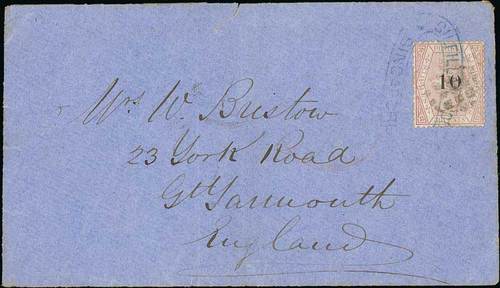 Mrs W. Bristow
23 York Road
Gt Yarmouth
England
10